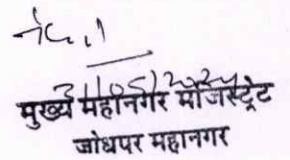 31/05/2024
मुख्य महानगर मजिस्ट्रेट
जोधपुर महानगर